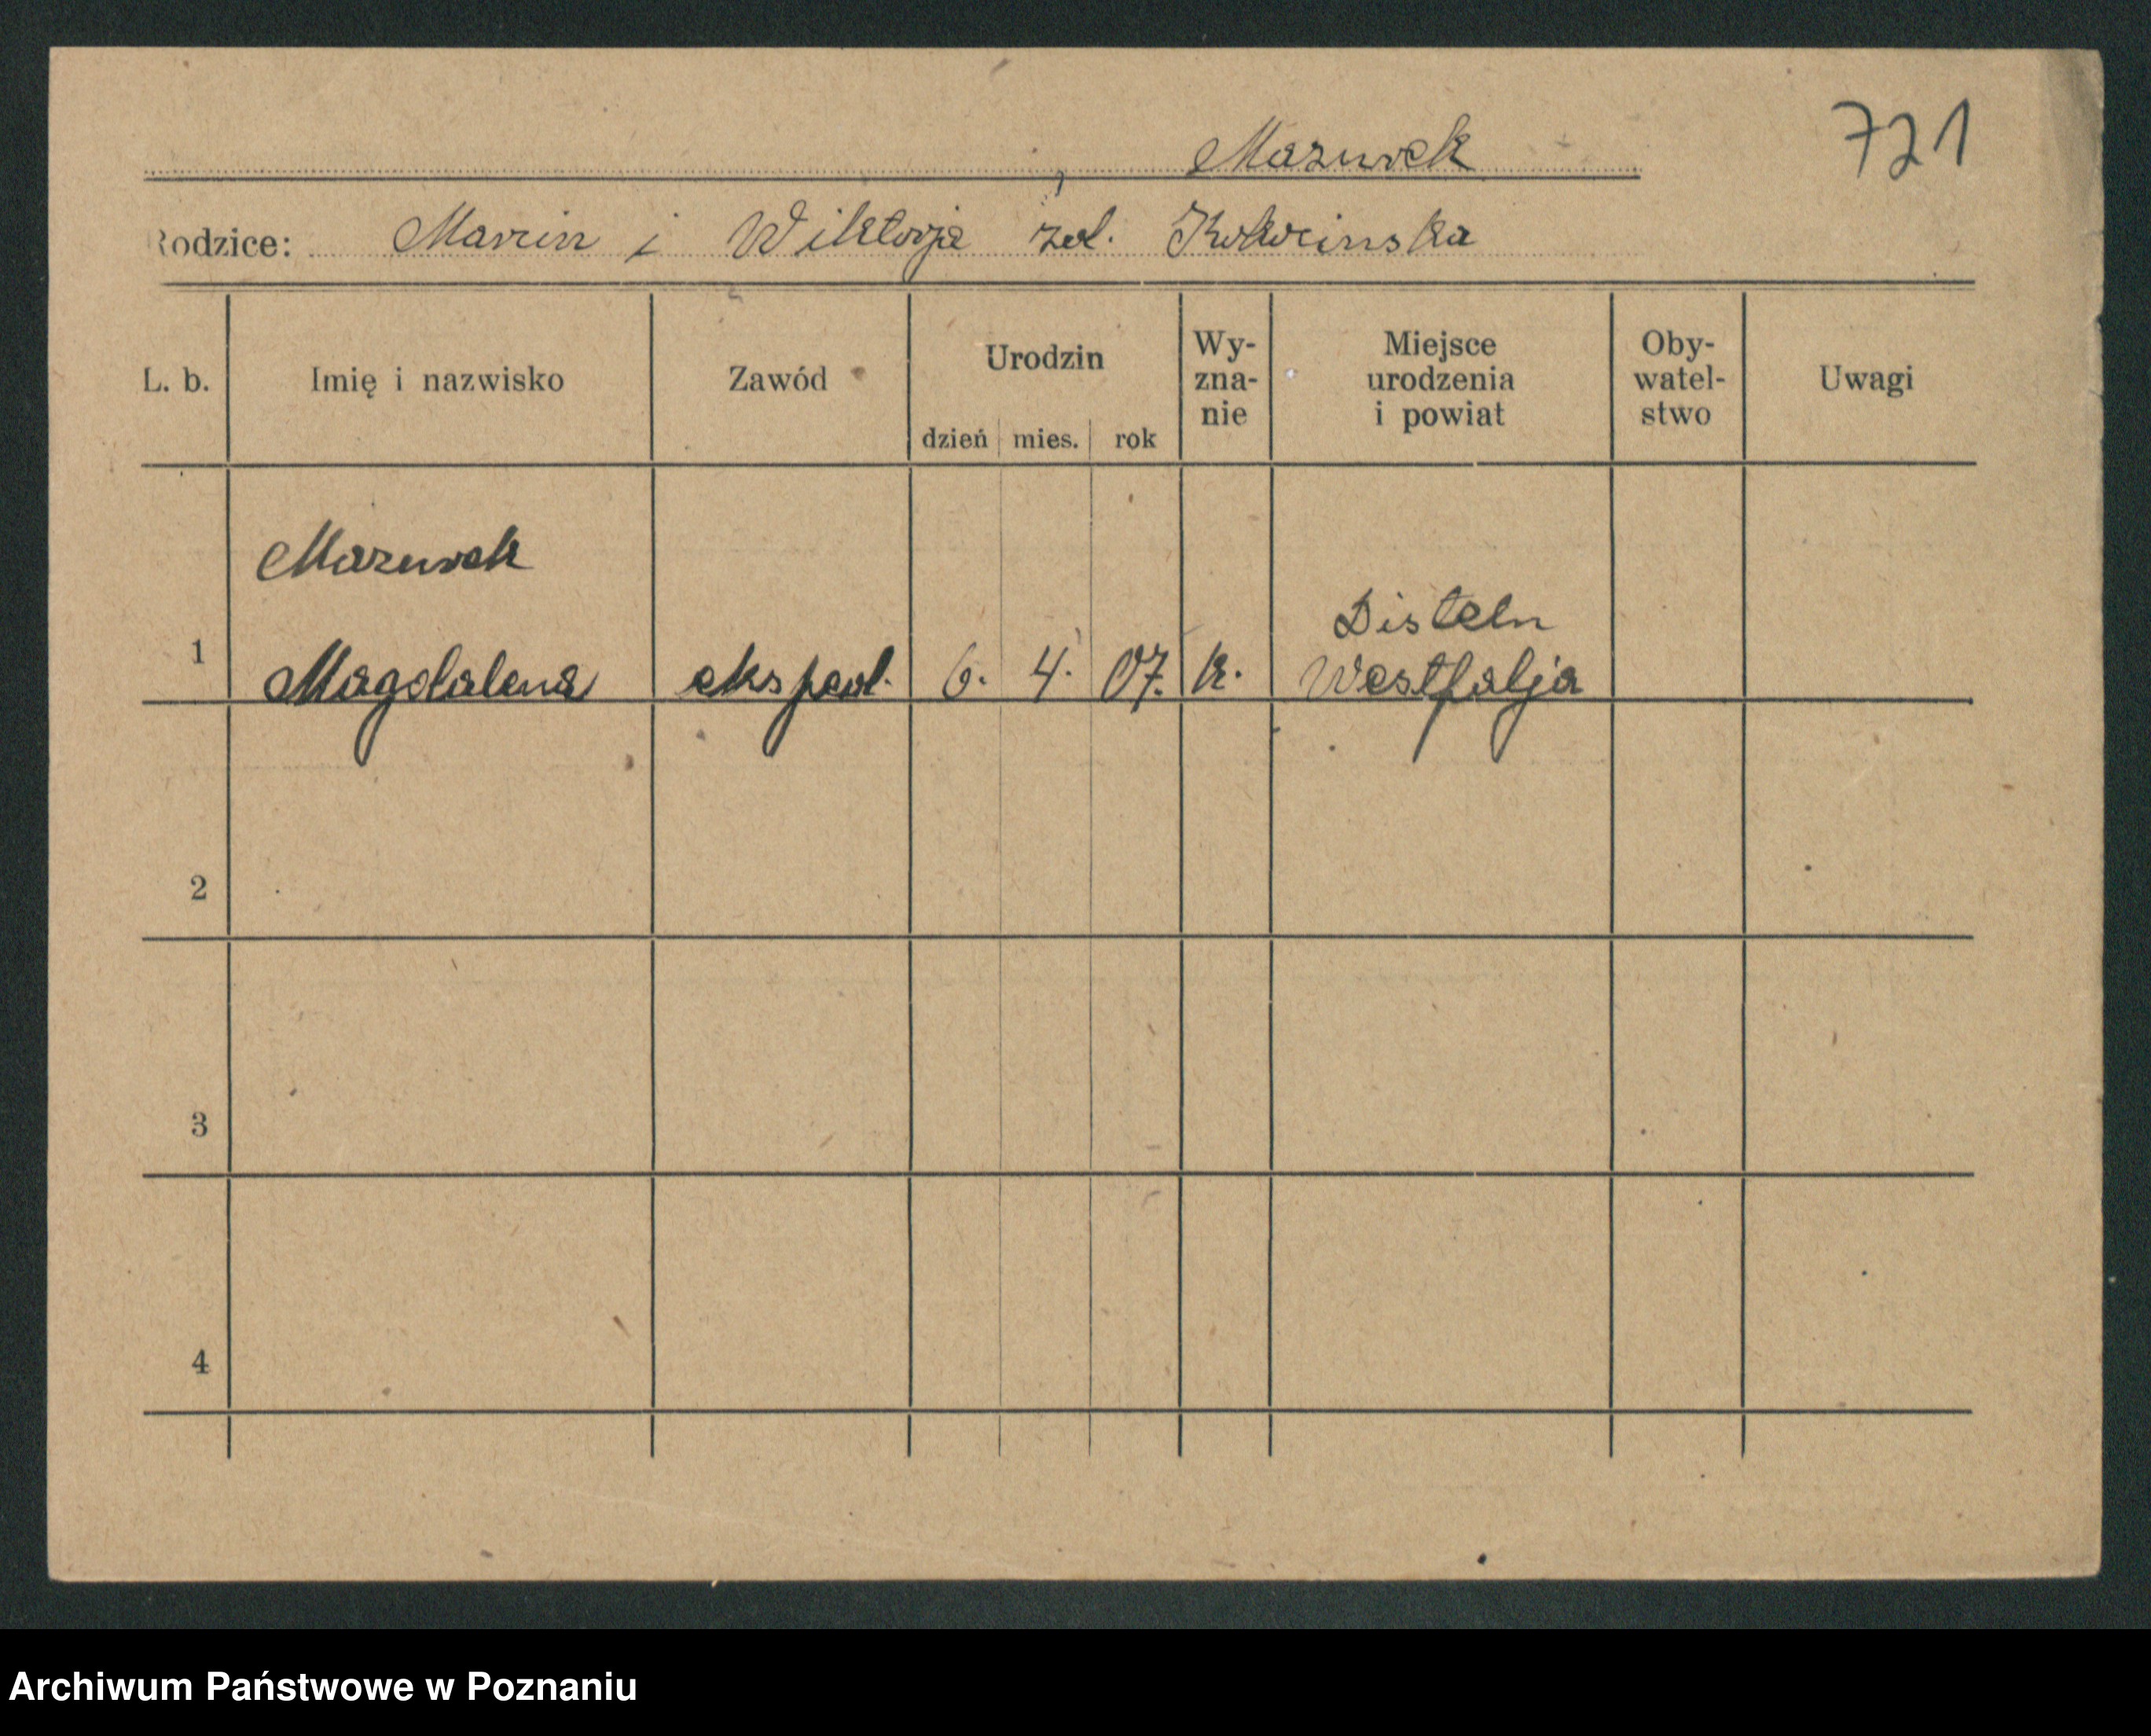 721
Mazurek
Rodzice: Marcin i Wiktorja zd.
L. b. Imię i nazwisko Zawód Urodzin dzień mies. rok Wy-zna-nie Miejsce urodzenia i powiat Oby-watel-stwo Uwagi
Mazurek
Disteln
1 Magdalena eksped. 6. 4. 07. k. Westfalja
2
3
4
Archiwum Państwowe w Poznaniu